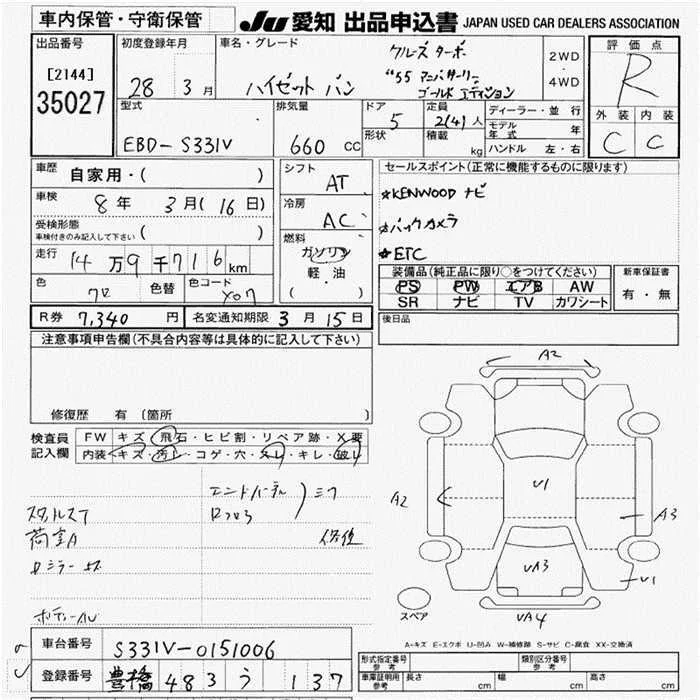 車内保管・守衛保管
JU 愛知 出品申込書 JAPAN USED CAR DEALERS ASSOCIATION
出品番号
[2144]
35027
初度登録年月
28 3月
車名・グレード
ハイゼット バン
クルーズ ターボ
"55 アニバーサリー
ゴールド エディション
2WD
・
4WD
評価点
R
外装 内装
C C
型式
EBD-S331V
排気量
660 CC
ドア
5
形状
定員
2(4)人
積載
kg
ディーラー・並行
モデル年式 年
ハンドル 左・右
車歴
自家用・( )
車検
8年 3月(16日)
受検形態
車検付きのみ記入して下さい ( )
走行
14万9千716km
色
クロ
色替
色コード
X07
シフト
AT
冷房
AC
燃料
ガソリン
軽・油
( )
セールスポイント(正常に機能するものに限り)
★KENWOOD ナビ
★バックカメラ
★ETC
装備品(純正品に限り○をつけてください)
PS PW エアB AW
SR ナビ TV カワシート
新車保証書
有・無
R券 7,340 円 名変通知期限 3月15日
後日品
注意事項申告欄(不具合内容等は具体的に記入して下さい)
修復歴 有 〔箇所 〕
検査員
記入欄
FW キズ・飛石・ヒビ割・リペア跡・X要
内装 キズ・汚レ・コゲ・穴・スレ・キレ・破レ
エンドパネル
Rフロア
荷室A
A2
A2
U1
A3
UA3
U1
UA4
スペア
A-キズ E-エクボ U-凹み W-補修跡 S-サビ C-腐食 XX-交換済
車台番号 S331V-0151006
登録番号 豊橋 483 う 137
型式指定番号 参考
類別区分番号 参考
車庫証明用 参考 長さ cm 幅 cm 高さ cm